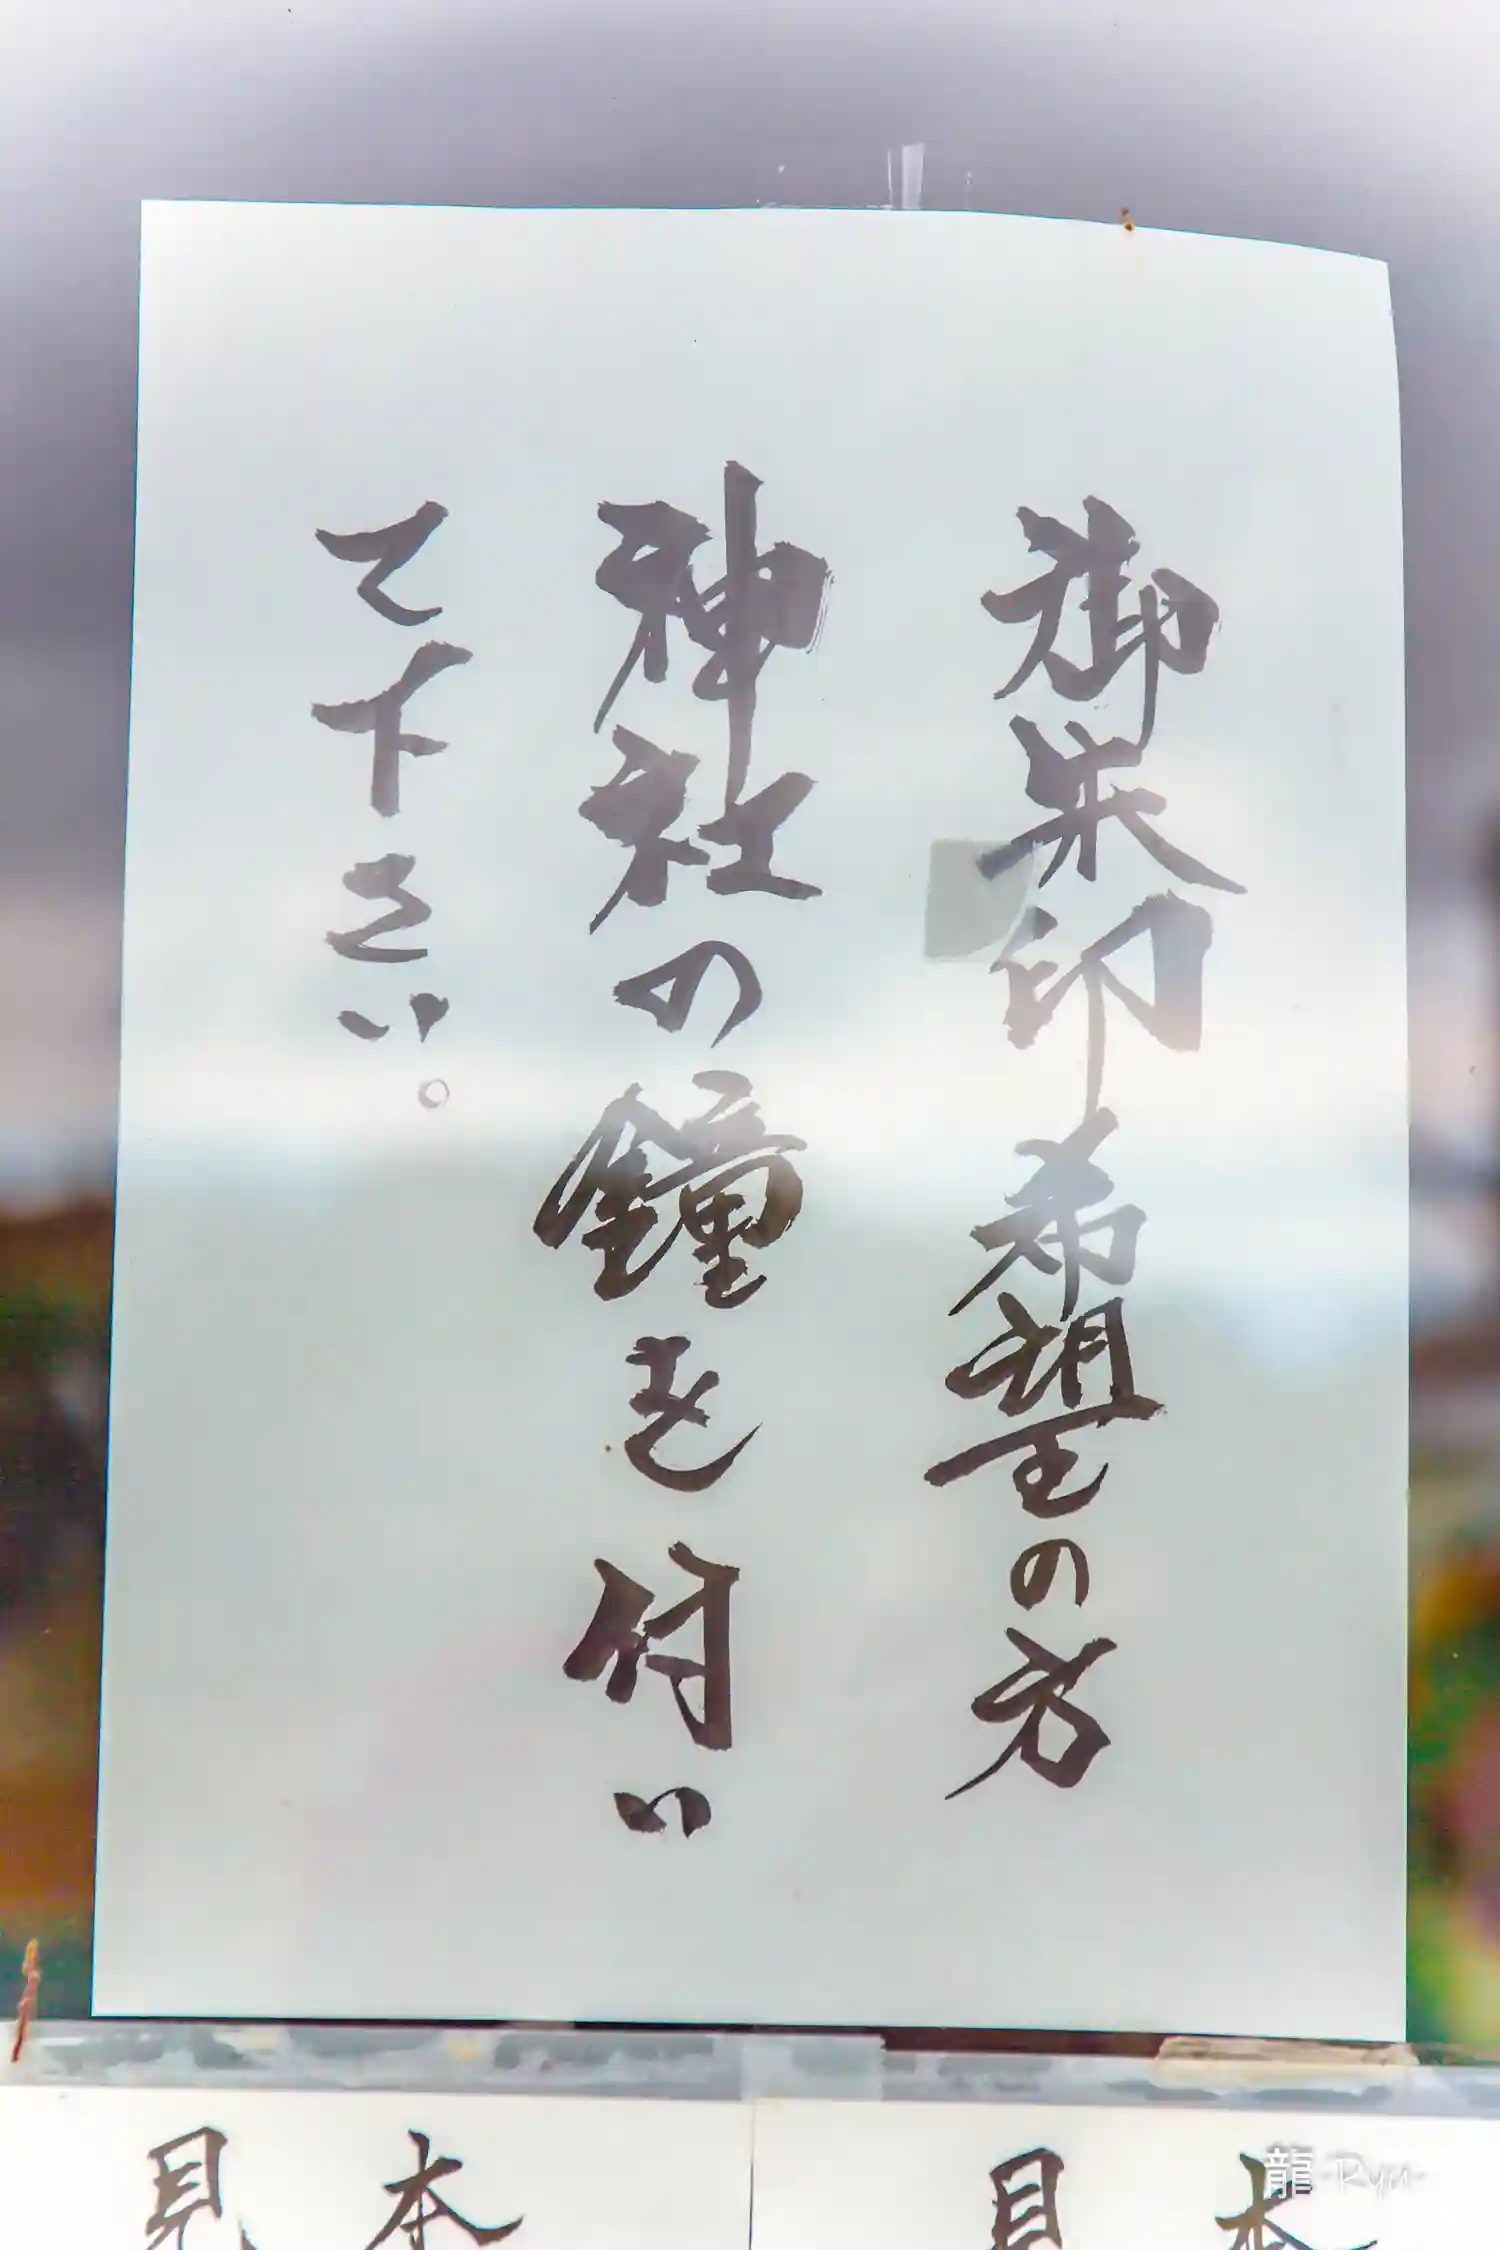 御朱印希望の方
神社の鐘を付い
て下さい。
見本
見本
龍-Ryu-